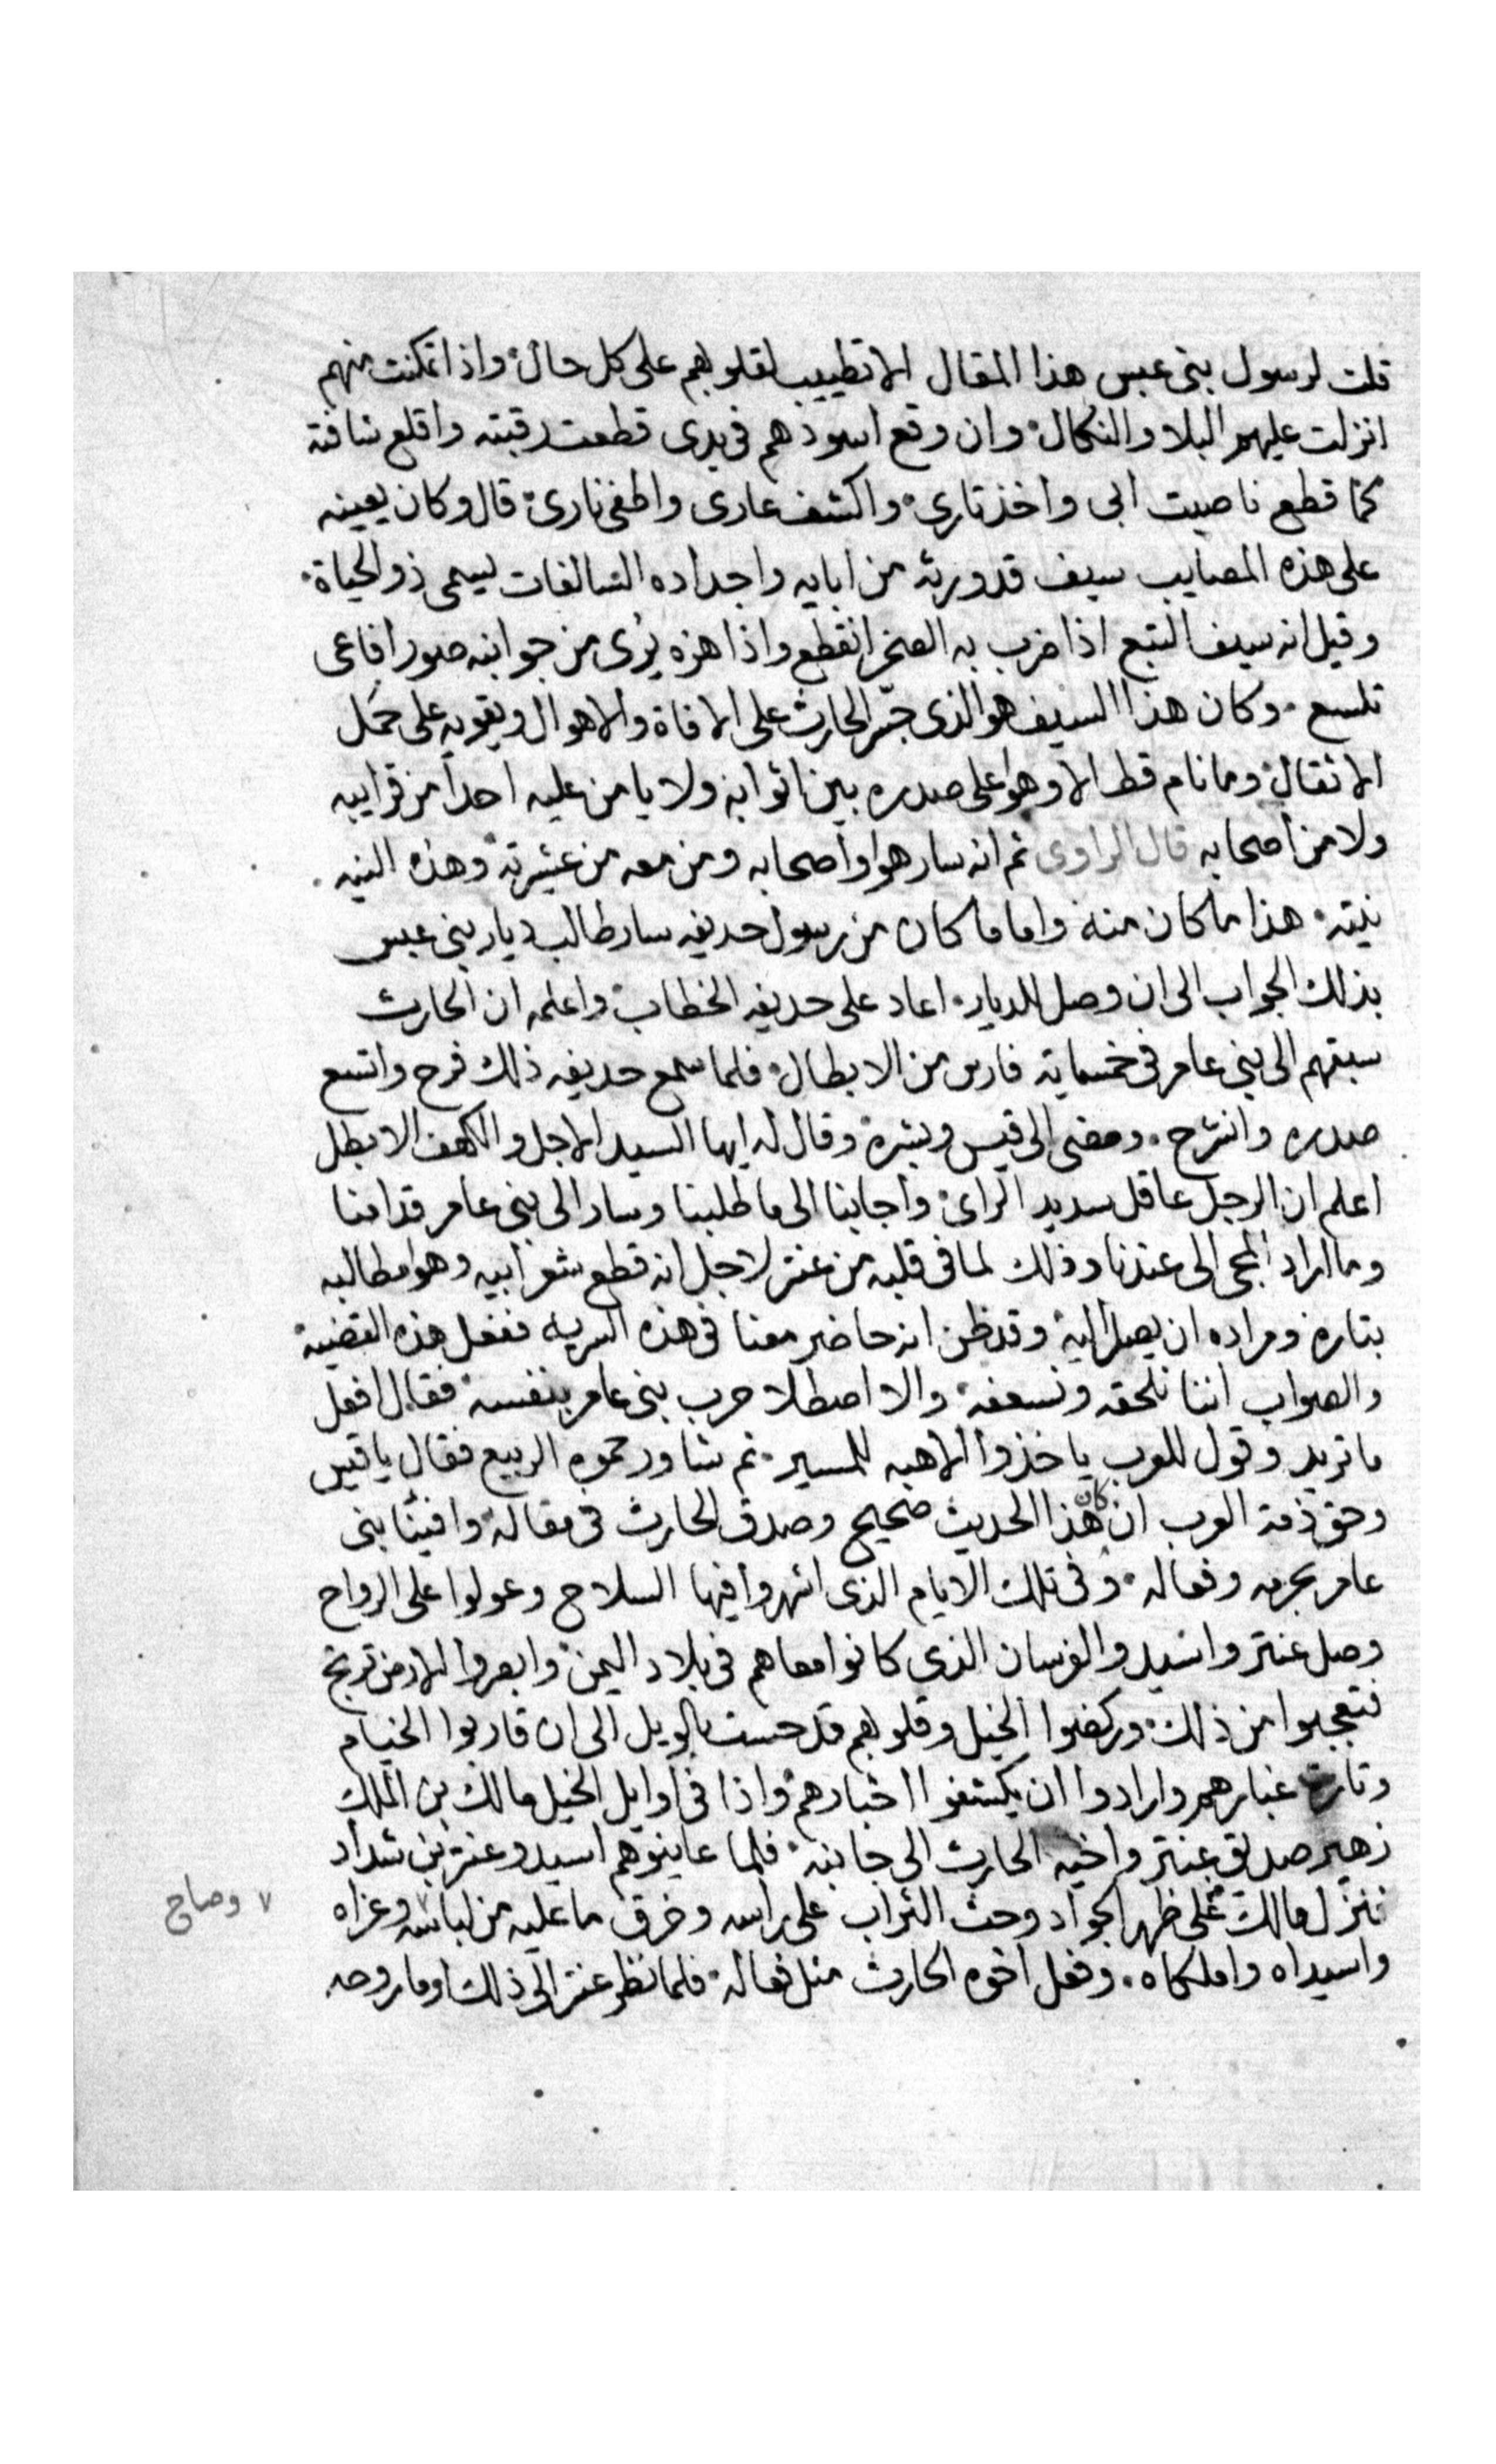 قلت لرسول بنى عبس هذا المقال الا تطييب لقلوبهم على كل حال واذا تمكنت منهم
انزلت عليهم البلا والنكال وان وقع اسودهم فى يدى قطعت رقبته واقلع شافته
كما قطع ناصيت ابى واخذ تارى واكشف عارى واطفى نارى قال وكان يعينه
على هذه المصايب سيف قد ورثه من ابايه واجداده السالفات يسمى ذو الحياة
وقيل انه سيف التبع اذا ضرب به الصخر انقطع واذا هزه يرى من جوانبه صور افاعى
تلسع وكان هذا السيف هو الذى جسّر الحارث على الافاة والاهوال ويقويه على حمل
الاثقال وما نام قط الا وهو على صدره بين اثوابه ولا يامن عليه احدا من قرايبه
ولا من اصحابه قال الراوى ثم انه سار هوا واصحابه ومن معه من عشيرته وهذه النيه
نيته هذا ما كان منه واما ما كان من رسول حديفه سار طالب ديار بنى عبس
بذلك الجواب الى ان وصل للديار اعاد على حديفه الخطاب واعلمه ان الحارث
سبقهم الى بنى عامر فى خمسماية فارس من الابطال فلما سمع حديفه ذلك فرح واتسع
صدره وانشرح ومضى الى قيس وبشره وقال له ايها السيد الاجل والكهف الابطل
اعلم ان الرجل عاقل سديد الراى واجابنا الى ما طلبنا وسار الى بنى عامر قدامنا
وما اراد المجى الى عندنا وذلك لما فى قلبه من عنتر لاجل انه قطع شعر ابيه وهوا مطالبه
بتاره ومراده ان يصل اليه وقد ظن انه حاضر معنا فى هذه السريه ففعل هذه القضيه
والصواب اننا نلحقه ونسعفه والا اصطلا حرب بنى عامر بنفسه فقال افعل
ما تريد وقول للعرب ياخذوا الاهبه للمسير ثم شاور حموه الربيع فقال يا قيس
وحق ذمة العرب ان كان هذا الحديث صحيح وصدق الحارث فى مقاله وافينا بنى
عامر بحربه وفعاله وفى تلك الايام الذى اشهروا فيها السلاح وعولوا على الرواح
وصل عنتر واسيد والفرسان الذى كانوا معاهم فى بلاد اليمن وابصروا الارض ترتج
فتعجبوا من ذلك وركضوا الخيل وقلوبهم قد حست بالويل الى ان قاربوا الخيام
وتارت غبارهم وارادوا ان يكشفوا اخبارهم واذا فى اوايل الخيل مالك بن الملك
زهير صديق عنتر واخيه الحارث الى جانبه فلما عاينوهم اسيد وعنتر بن شداد
فنزل مالك على ظهر الجواد وحث التراب على راسه وخرق ما عليه من لباسه وعزاه
٧ وصاح
واسيداه واملكاه وفعل اخوه الحارث مثل فعاله فلما نظر عنتر الى ذلك اوما روحه